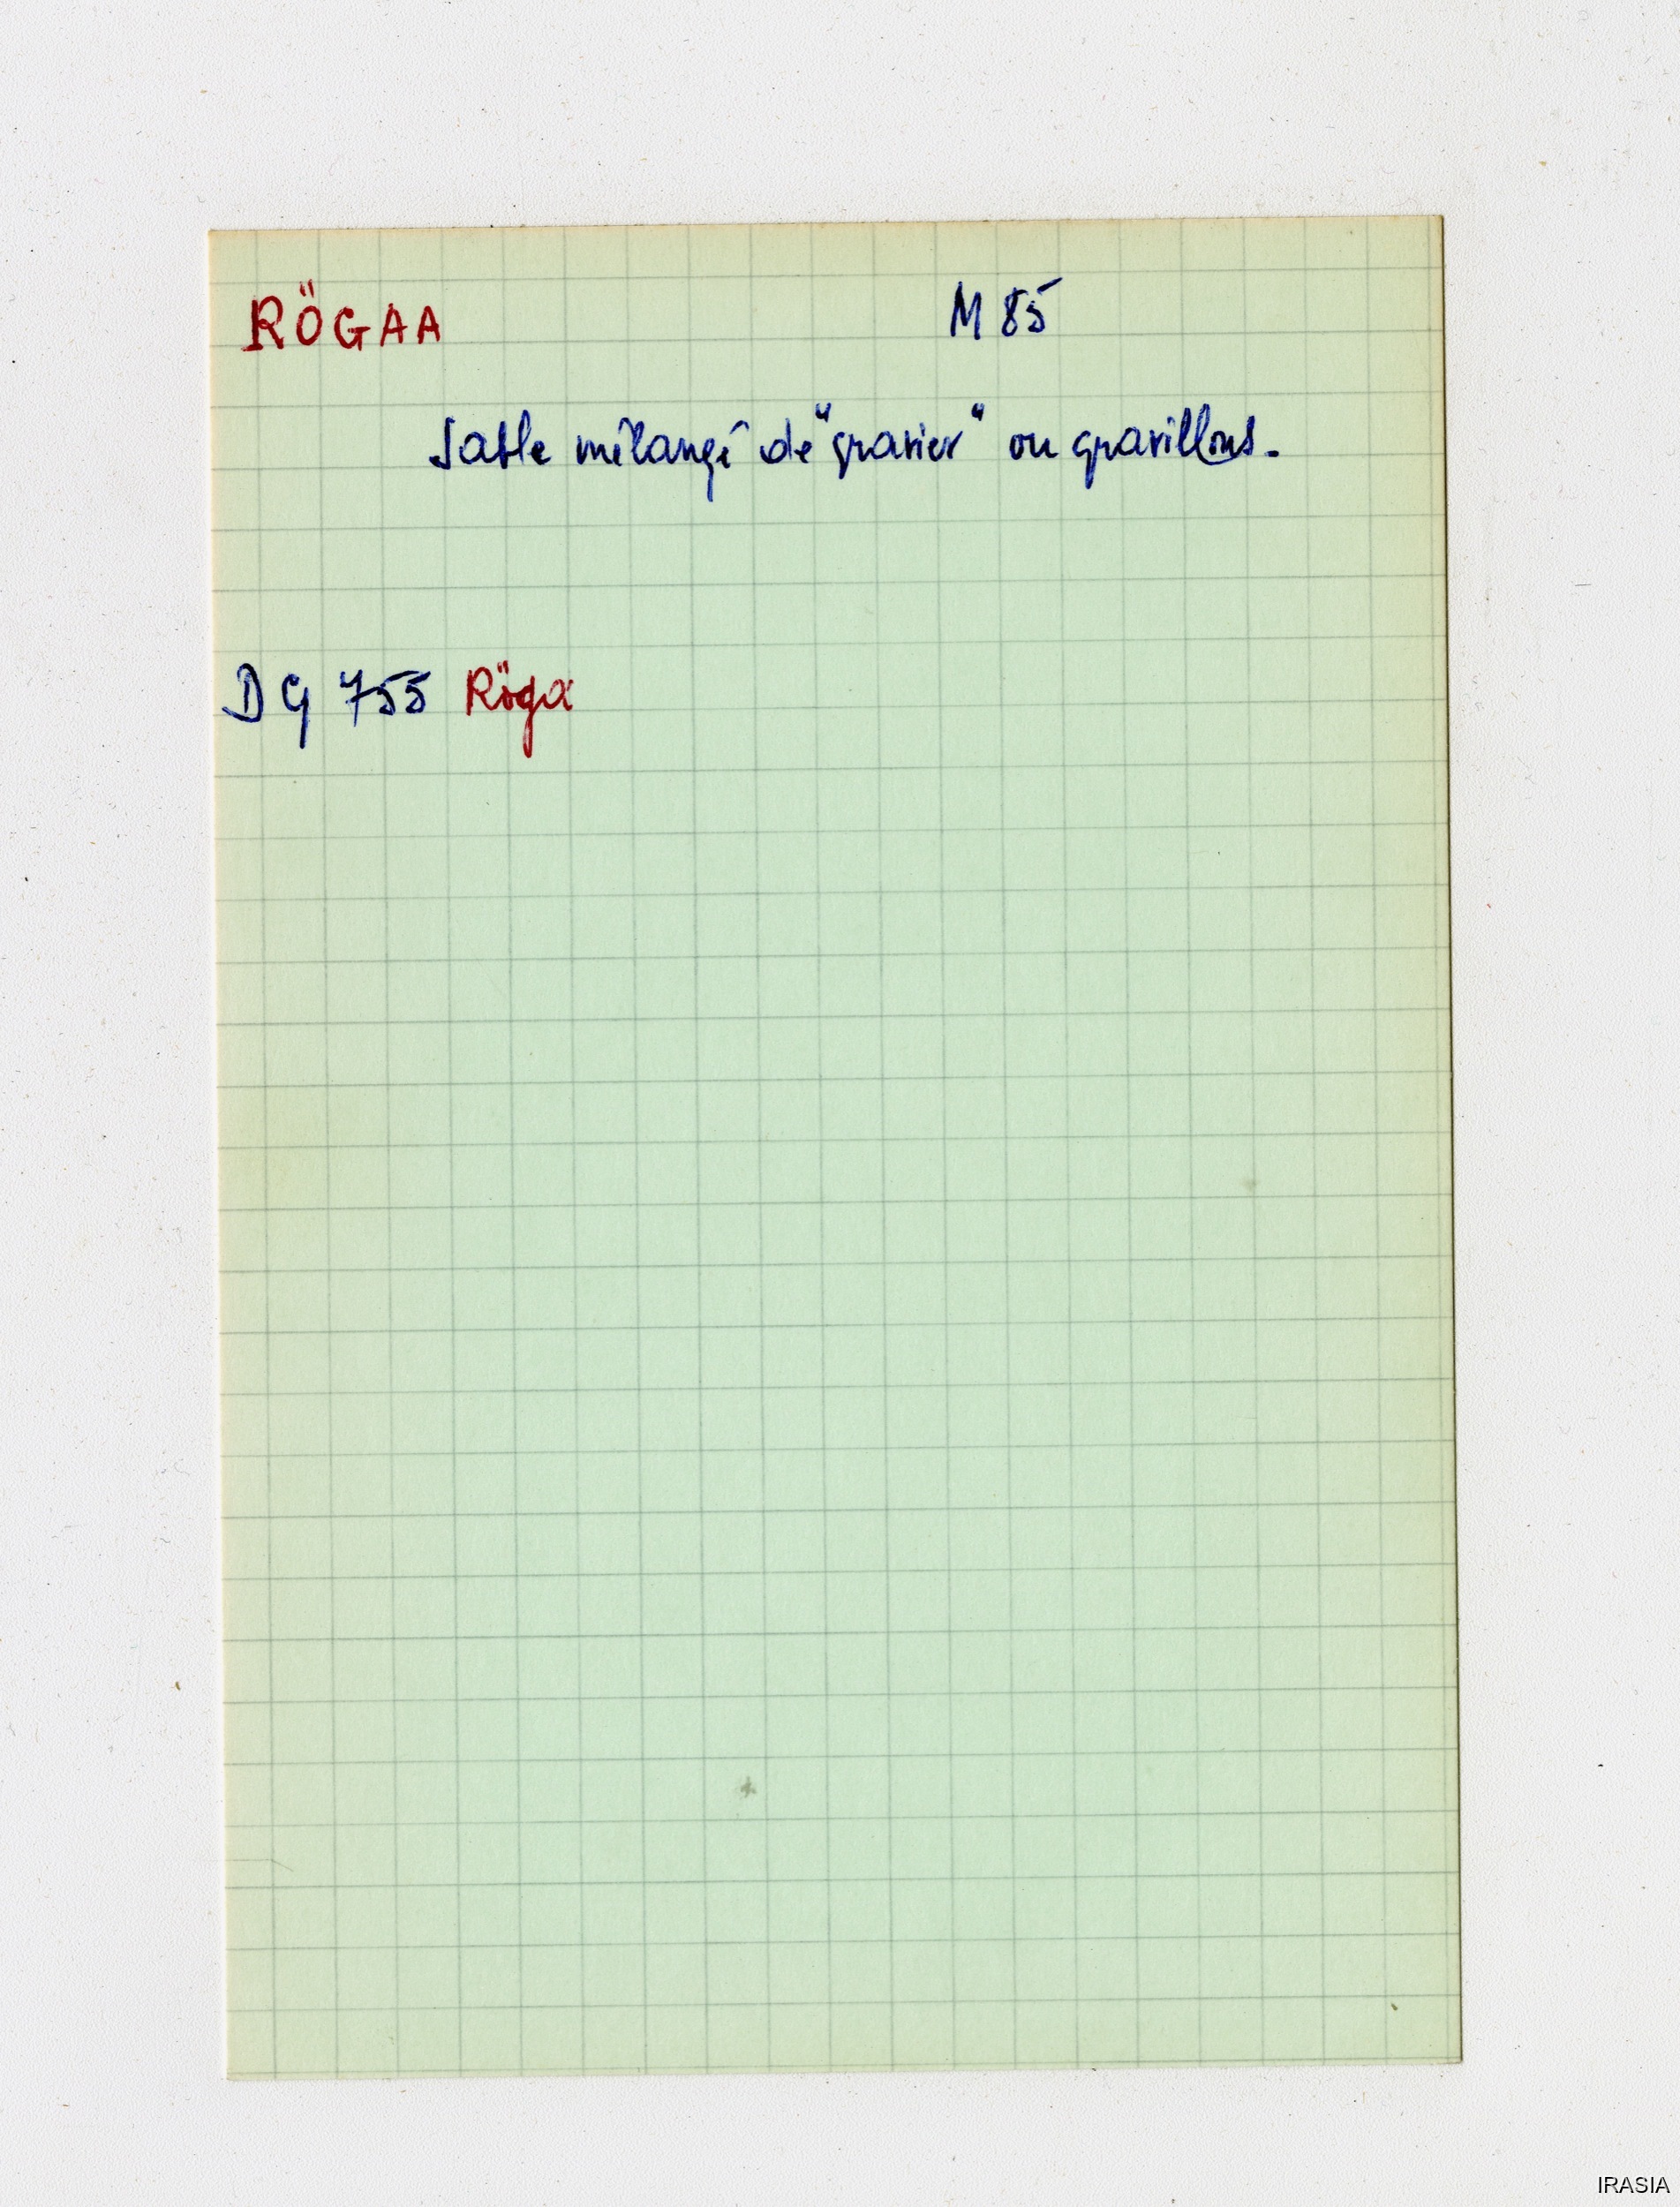 RÖGAA M 85
Sable mélangé de "gravier" ou gravillons.
DG 755 Röga
IRASIA